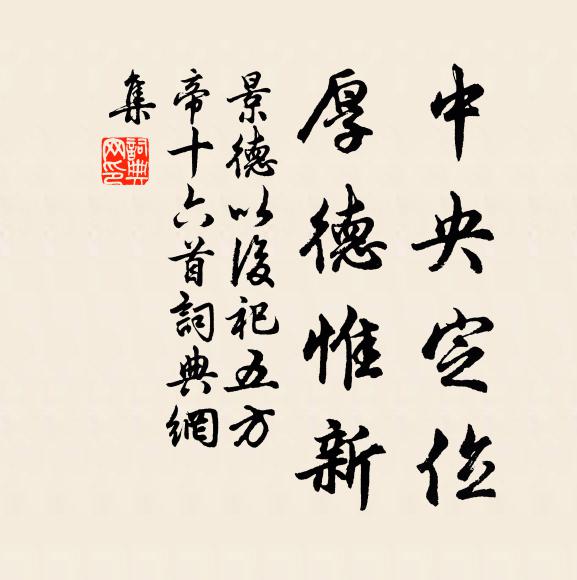 中央定位
厚德惟新
景德以後祀五方
帝十六首詞典網
集
詞典網印